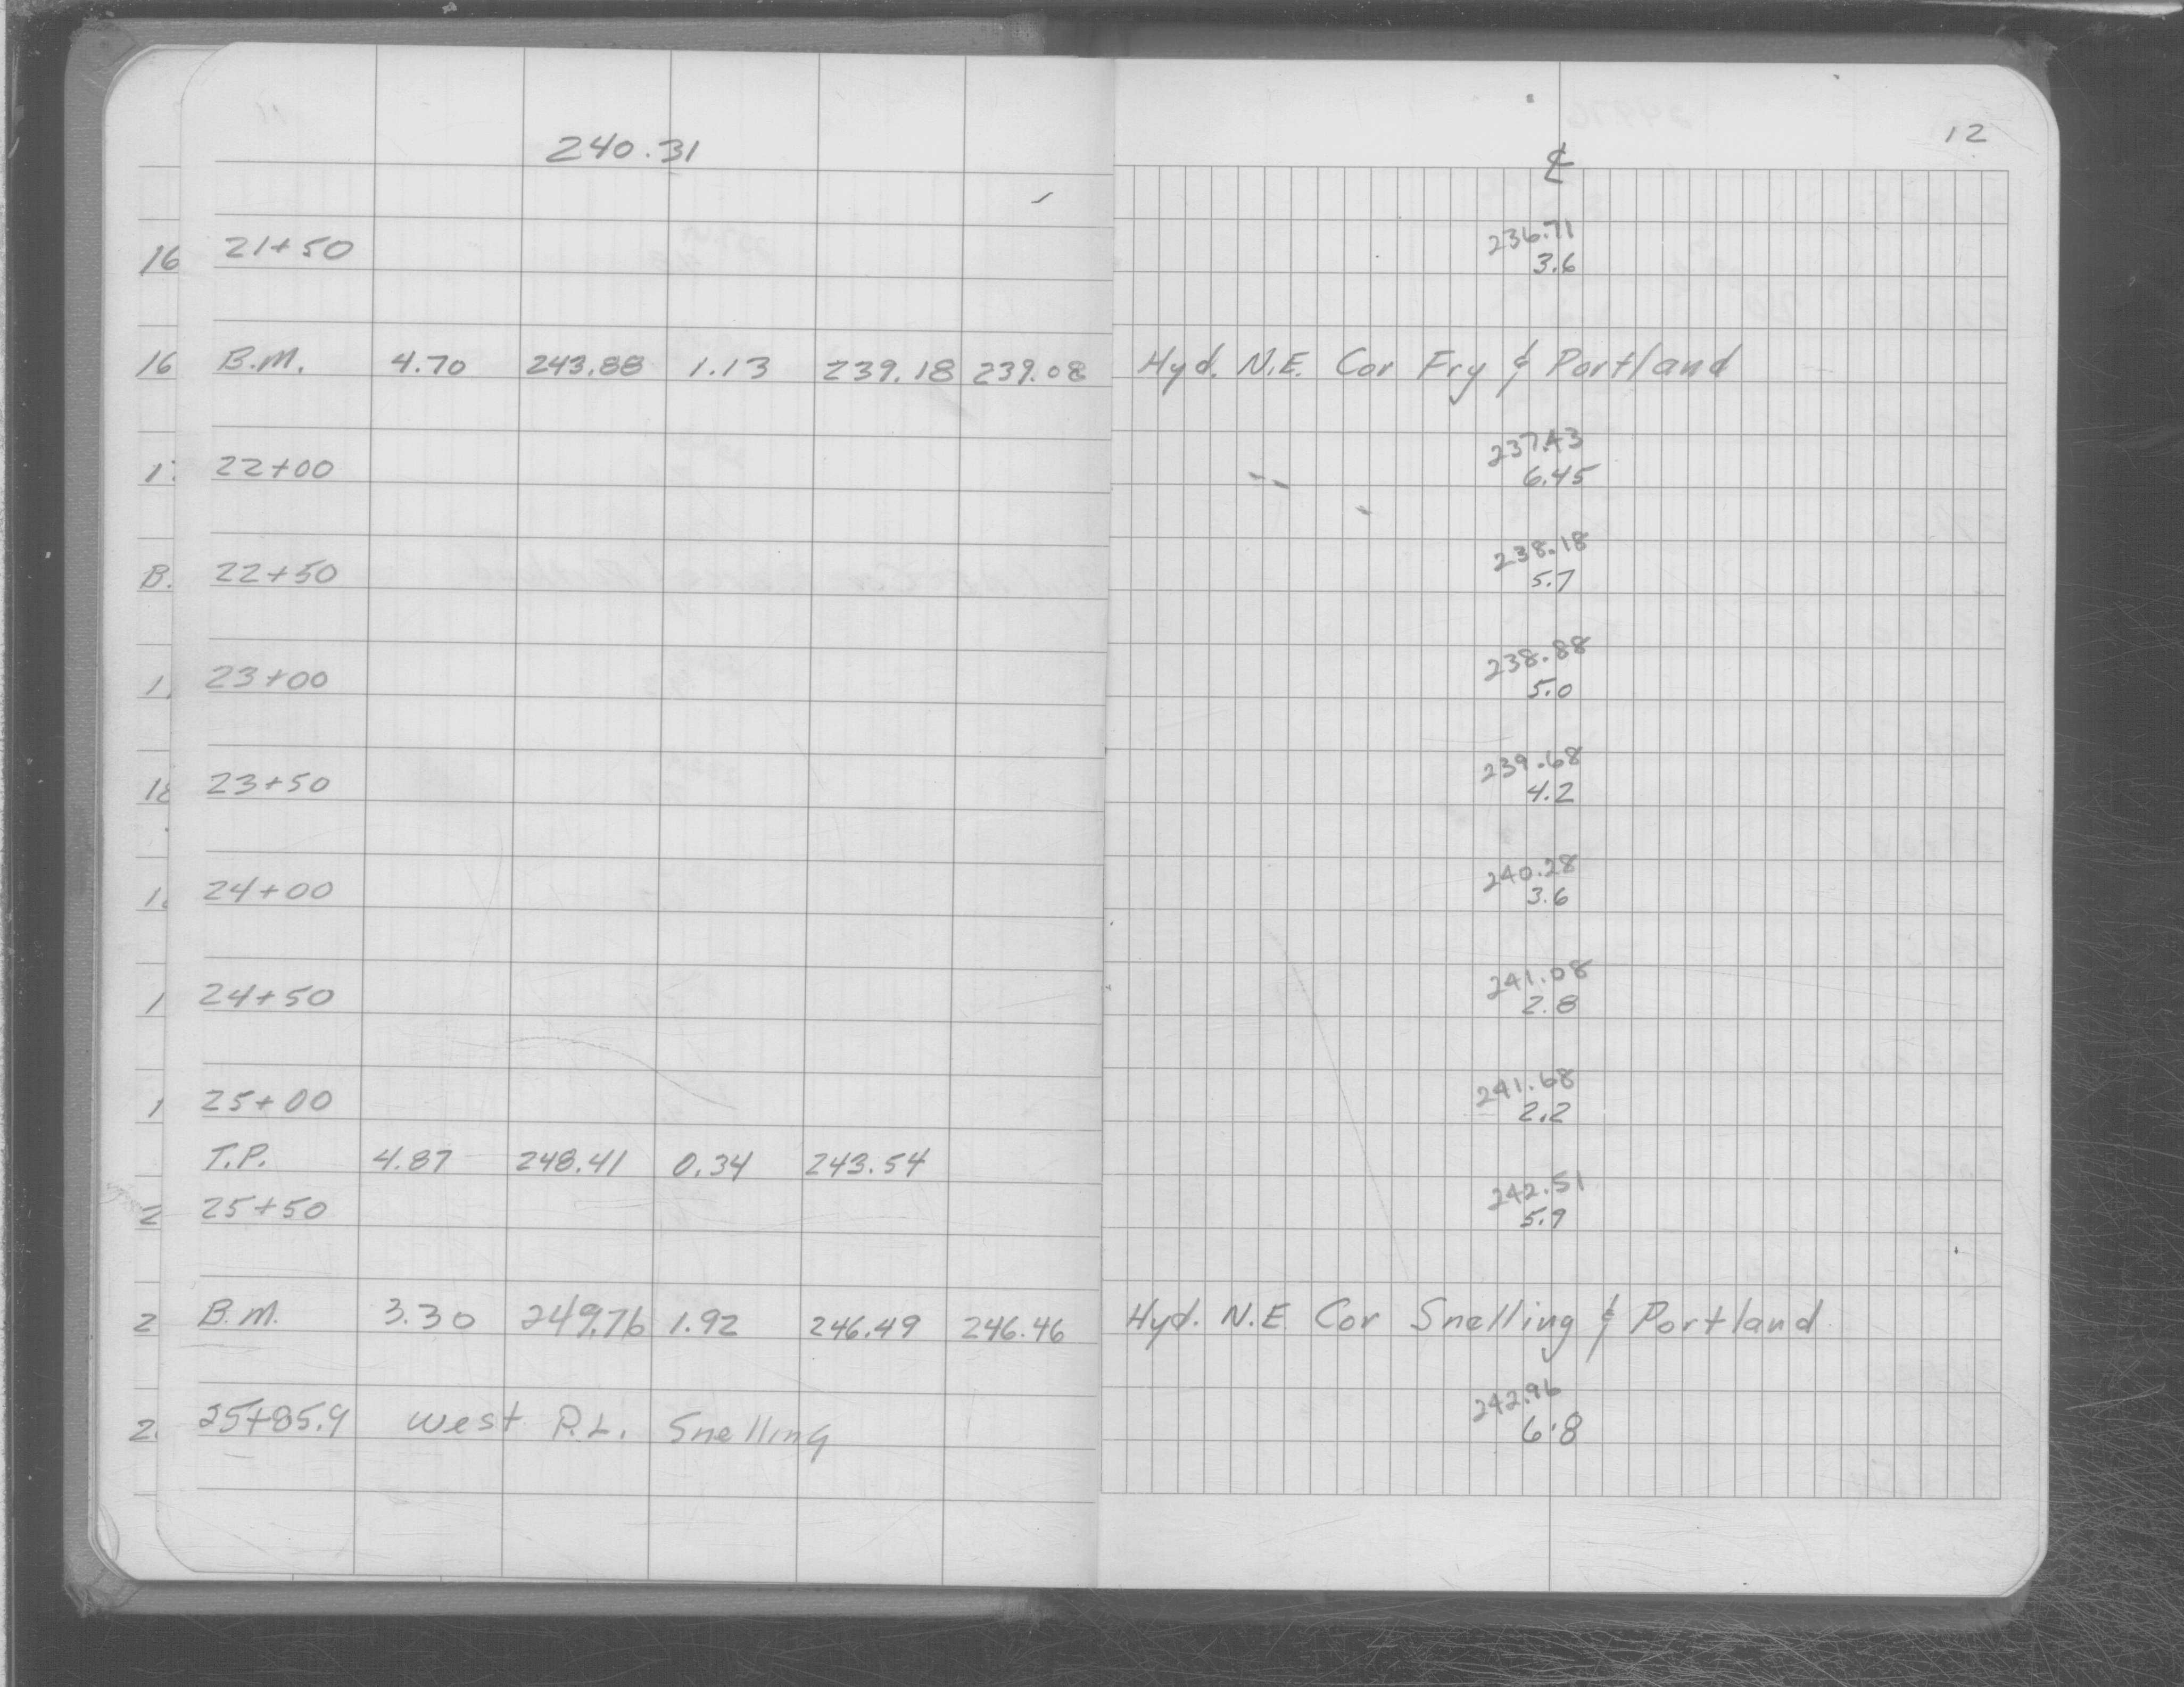 12
240.31 ℄
236.71
16 21+50 3.6
16 B.M. 4.70 243.88 1.13 239.18 239.08 Hyd. N.E. Cor Fry & Portland
237.43
22+00 6.45
238.18
B. 22+50 5.7
238.88
23+00 5.0
239.68
18 23+50 4.2
240.28
24+00 3.6
241.08
24+50 2.8
241.68
25+00 2.2
T.P. 4.87 248.41 0.34 243.54
242.51
2 25+50 5.9
2 B.M. 3.30 249.76 1.92 246.49 246.46 Hyd. N.E. Cor. Snelling & Portland
242.96
2 25+85.9 West P.L. Snelling 6.8